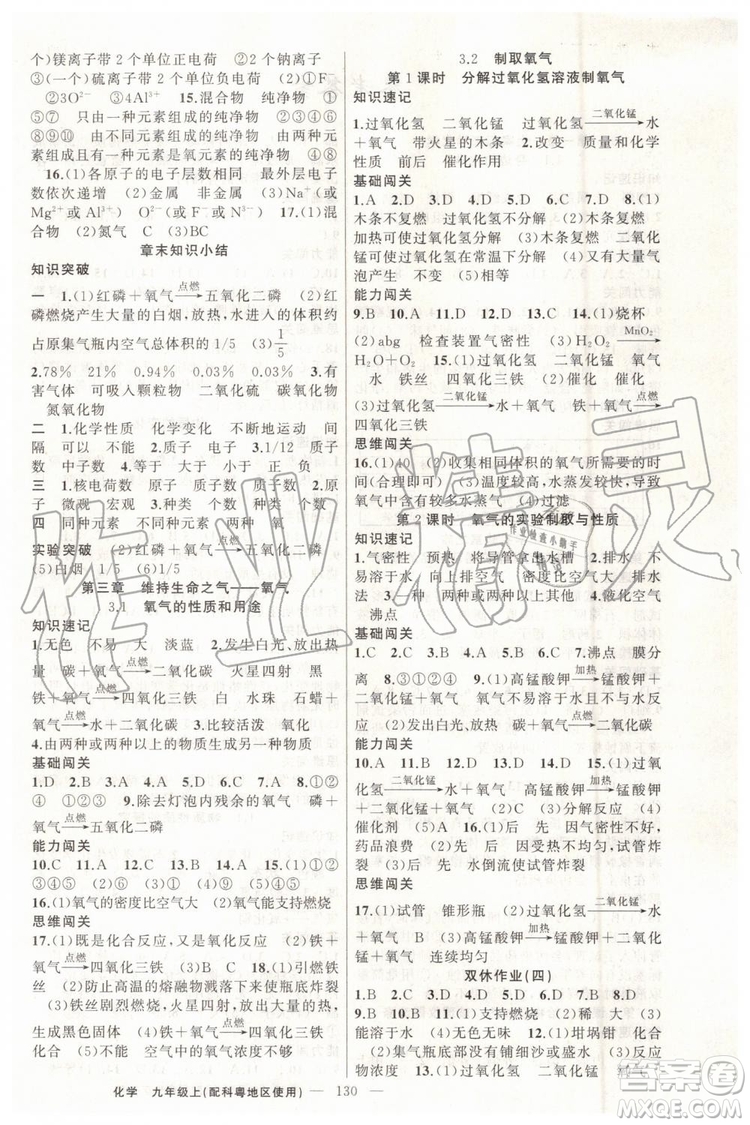 个)镁离子带 2 个单位正电荷 ②2 个钠离子
③(一个)硫离子带 2 个单位负电荷 (2)①F
②3O²⁻ ③2S ④4Al³⁺ 15.混合物 纯净物
①②⑤⑦ 只由一种元素组成的纯净物 ③⑥
⑧⑨⑩ 由不同元素组成的纯净物 ④⑧ 由两种
元素组成且其中一种是氧元素的纯净物
16.(1)各原子的电子层数相同 最外层电子
数依次递增 (2)金属 非金属 (3)Na⁺(或
Mg²⁺或 Al³⁺) O²⁻(或 F⁻) 17.(1)混
合物 (2)氮气 (3)C (3)BC
章末知识小结
知识突破
一 1.(1)红磷+氧气点燃→五氧化二磷 (2)红
磷燃烧产生大量的白烟,放热,水进入的体积约
占原集气瓶内空气总体积的 1/5 (3)1/5
2.78% 21% 0.94% 0.03% 0.03% 3.有
害气体 可吸入颗粒物 二氧化硫 碳氧化物
氮氧化物
二 1.化学性质 化学变化 不断地运动 间
隔 可以 不能 2.质子 电子 3.1/12 质子
数 中子数 4.等于 大于 小于 正 负
三 1.核电荷数 质子数 种类 个数 2.质
子 微观 宏观 3.种类 个数 种类 个数
四 同种元素 不同种元素 两种 氧
实验突破
(5)白烟 1/5 (6)1/5
第三章 维持生命之气——氧气
3.1 氧气的性质和用途
知识速记
1.无色 不易 大 淡蓝 2.发生白光、放出热
量 碳+氧气点燃→二氧化碳 火星四射 黑
铁+氧气点燃→四氧化三铁 白 水珠 石蜡+
氧气点燃→水+二氧化碳 3.比较活泼 氧化
4.由两种或两种以上的物质生成另一种物质
基础闯关
1.D 2.A 3.B 4.D 5.D 6.D 7.B 8.①②
④ ①②③⑤ 9.除去灯泡内残余的氧气 磷+
氧气点燃→五氧化二磷
能力闯关
10.C 11.A 12.C 13.A 14.D 15.(1)①②
③④⑤ (2)①②③ (3)①②③ (4)①②③
16.(1)氧气的密度比空气大 (2)氧气能支持燃烧
思维闯关
17.(1)既是化合反应,又是氧化反应 (2)铁+
氧气点燃→四氧化三铁 (3)B C 18.(1)引燃铁
丝 (2)防止高温的熔融物溅落下来使瓶底炸裂
(3)铁丝剧烈燃烧,火星四射,放出大量的热,
生成黑色固体 (4)铁+氧气点燃→四氧化三铁
化合 (5)不能 空气中的氧气浓度不够
3.2 制取氧气
第 1 课时 分解过氧化氢溶液制氧气
知识速记
1.过氧化氢 二氧化锰 过氧化氢二氧化锰→水
+氧气 带火星的木条 2.改变 质量与化学
性质 前后 催化作用
基础闯关
1.A 2.D 3.D 4.D 5.D 6.C 7.B 8.(1)
木条不复燃 过氧化氢不分解 (2)木条复燃
加热可使过氧化氢分解 (3)木条复燃 二氧化
锰可使过氧化氢在常温下分解 (4)大量气
泡产生 不变 (5)相等
能力闯关
9.B 10.A 11.D 12.A 13.C 14.(1)烧杯
(2)abg 检查装置气密性 (3)H₂O₂MnO₂→
H₂O+O₂ 15.(1)过氧化氢 二氧化锰 氧气
水 铁丝 四氧化三铁 (2)催化 催化
(3)过氧化氢二氧化锰→水+氧气 铁+氧气点燃→
四氧化三铁
思维闯关
16.(1)40 (2)收集相同体积的氧气所需要的时
间(合理即可) (3)温度较高,水蒸发较快,导致
氧气中含有较多水蒸气 (4)过滤
第 2 课时 氧气的实验制取与性质
知识速记
1.气密性 预热 将导管拿出水槽 2.不
易溶于水 向上排空气 密度比空气大 排水
法 3.一种 两种或两种以上 4.液化空气
沸点
基础闯关
1.C 2.C 3.B 4.D 5.D 6.C 7.沸点 部分
离 8.③①②④ 9.(1)高锰酸钾加热→锰酸钾+
二氧化锰+氧气 氧气不易溶于水且不与水反
应 (2)发出白光、放热 碳+氧气点燃→二氧化碳
能力闯关
10.A 11.B 12.A 13.D 14.D 15.(1)过氧
化氢二氧化锰→水+氧气 高锰酸钾加热→锰酸钾+
二氧化锰+氧气 (2)① (3)分解反应 (4)
催化剂 (5)A 16.(1)防止加热时试管炸裂,
药品浪费 (2)先预热后集中加热,防止试管炸
裂 (4)②⑧ 先 后 水倒流使试管炸裂
思维闯关
17.(1)试管 锥形瓶 (2)过氧化氢二氧化锰→水
+氧气 A B (3)高锰酸钾加热→锰酸钾+二
氧化锰+氧气 连续均匀
双休作业(四)
1.B 2.C 3.C 4.C 5.D 6.D 7.B 8.C
9.B 10.B 11.(1)支持燃烧 (2)稀 大 不
能溶于水 (3)无色无味 12.(1)坩埚钳 化合
(2)③ 集气瓶底部没有预留少量的水(或铺一
层细沙) 13.(1)过氧化氢二氧化锰→水+氧气
化学 九年级上(配科粤地区使用) — 130 —
作业精灵
作业检查小帮手